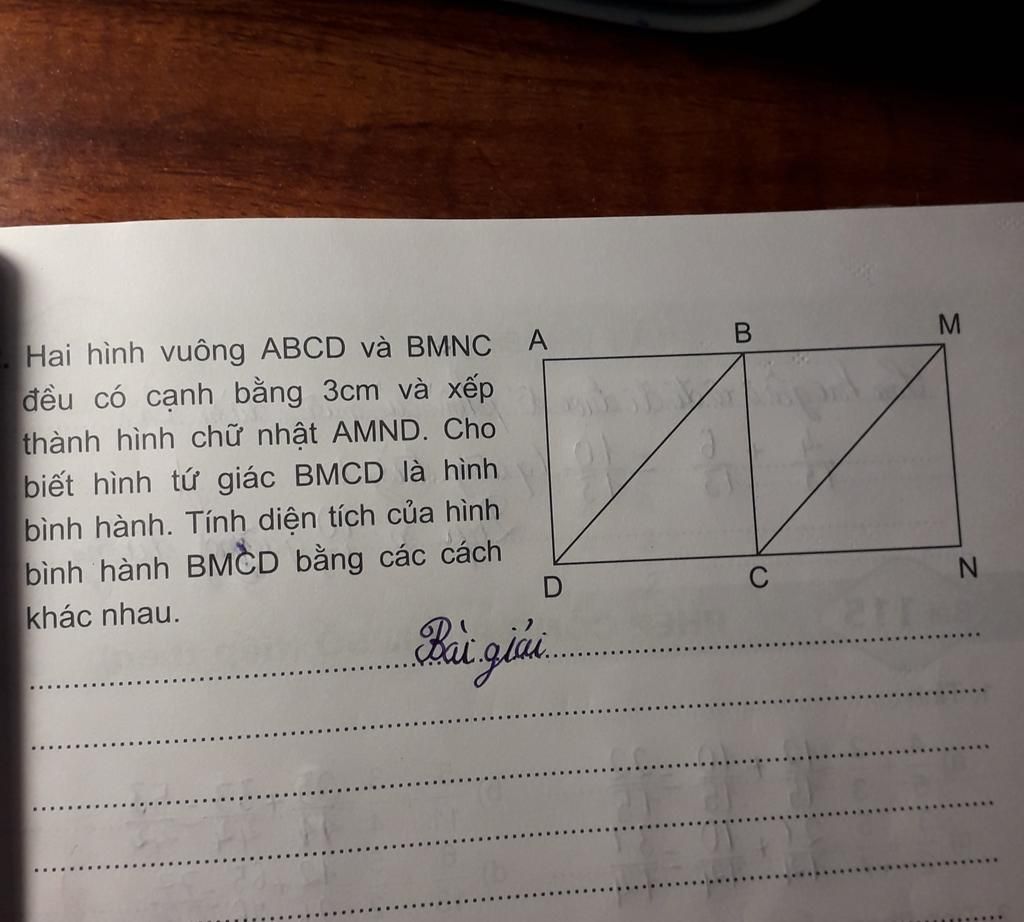 Hai hình vuông ABCD và BMNC
đều có cạnh bằng 3cm và xếp
thành hình chữ nhật AMND. Cho
biết hình tứ giác BMCD là hình
bình hành. Tính diện tích của hình
bình hành BMCD bằng các cách
khác nhau.
A
B
M
D
C
N
Bài giải